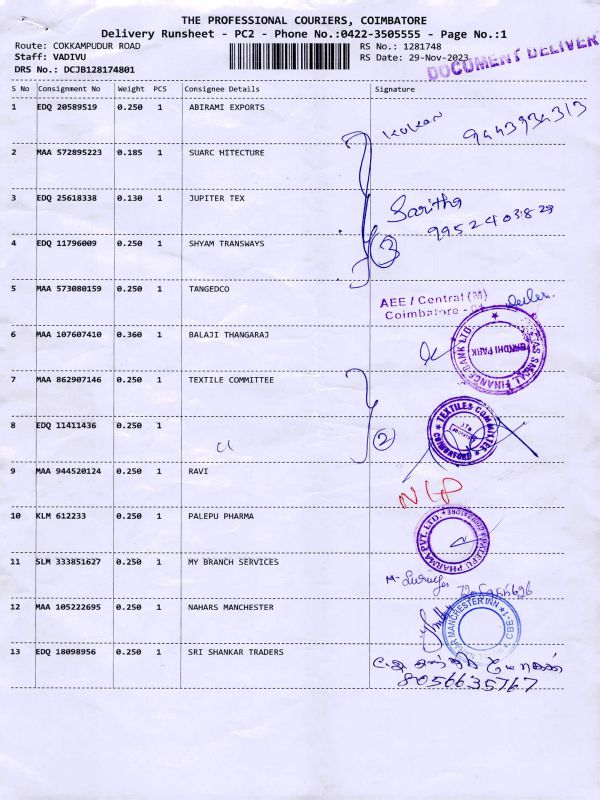 THE PROFESSIONAL COURIERS, COIMBATORE
Delivery Runsheet - PC2 - Phone No.:0422-3505555 - Page No.:1
Route: COKKAMPUDUR ROAD
RS No.: 1281748
Staff: VADIVU
RS Date: 29-Nov-2023
DRS No.: DCJB128174801
DOCUMENT DELIVER
S No Consignment No Weight PCS Consignee Details Signature
1 EDQ 20589519 0.250 1 ABIRAMI EXPORTS
9443934313
2 MAA 572895223 0.185 1 SUARC HITECTURE
3 EDQ 25618338 0.130 1 JUPITER TEX
Saritha
9952403829
4 EDQ 11796009 0.250 1 SHYAM TRANSWAYS
3
5 MAA 573080159 0.250 1 TANGEDCO
AEE / Central (M)
Coimbatore
6 MAA 107607410 0.360 1 BALAJI THANGARAJ
FINANCE BANK LTD.
GANDHI PARK
7 MAA 862907146 0.250 1 TEXTILE COMMITTEE
TEXTILES COMMITTEE
8 EDQ 11411436 0.250 1
2
9 MAA 944520124 0.250 1 RAVI
10 KLM 612233 0.250 1 PALEPU PHARMA
PALEPU PHARMA PVT. LTD.
COIMBATORE
11 SLM 333851627 0.250 1 MY BRANCH SERVICES
12 MAA 105222695 0.250 1 NAHARS MANCHESTER
MANCHESTER INN
CBE-1
13 EDQ 18098956 0.250 1 SRI SHANKAR TRADERS
8056635767